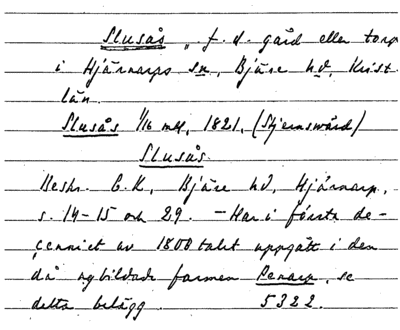 Slusås, f. d. gård eller torp
i Hjärnarps sn, Bjäre hd, Krist.
län.
Slusås 1/16 mtl, 1821, (Stjernswärd)
Slusås.
Beskr. C. K., Bjäre hd, Hjärnarp,
s. 14-15 och 29. - Har i första de-
cenniet av 1800 talet uppgått i den
då nybildade farmen Penarp, se
detta belägg. 5322.